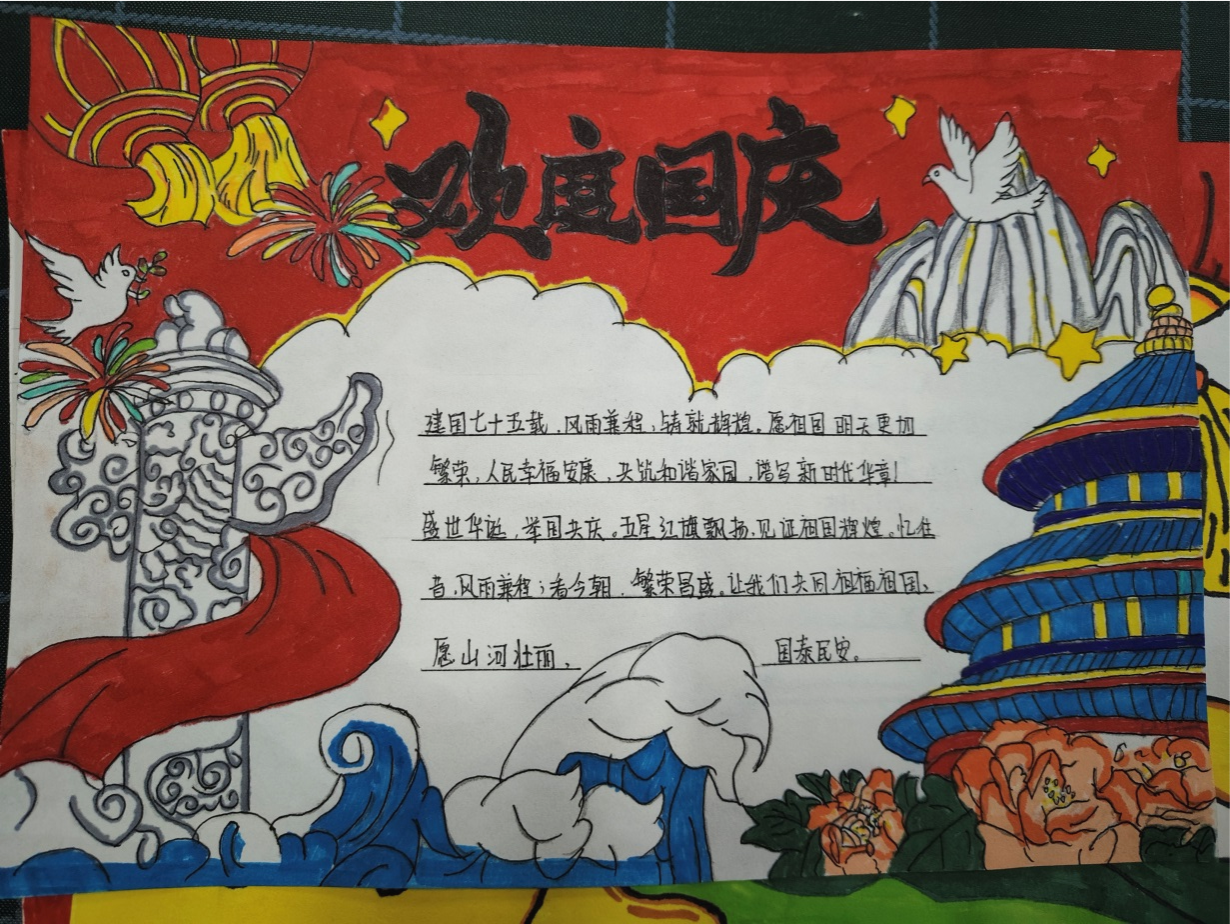 欢度国庆
建国七十五载，风雨兼程，铸就辉煌。愿祖国明天更加
繁荣，人民幸福安康，共筑和谐家园，谱写新时代华章！
盛世华诞，举国共庆。五星红旗飘扬，见证祖国辉煌。忆往
昔，风雨兼程；看今朝，繁荣昌盛。让我们共同祖福祖国，
愿山河壮丽，国泰民安。